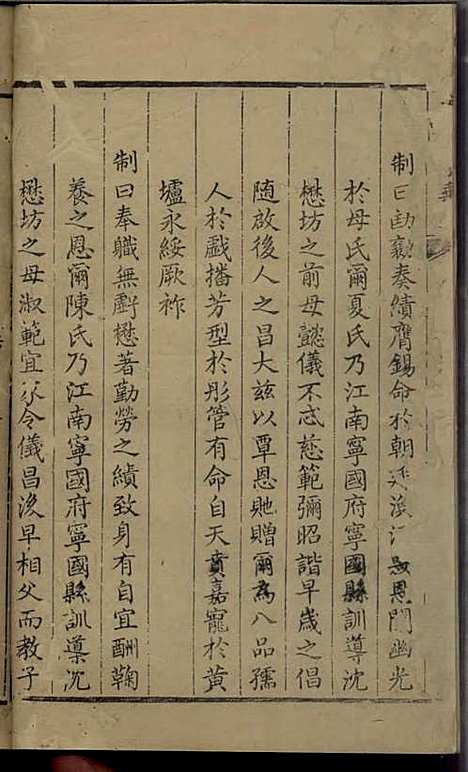 制曰劻勷奏績膺錫命於朝廷渙汗 恩門幽光
於母氏爾夏氏乃江南寧國府寧國縣訓導沈
懋坊之前母懿儀不忒慈範彌昭諧早歲之倡
随啟後人之昌大兹以覃恩貤贈爾為八品孺
人於戲播芳型於彤管有命自天賁嘉寵於黄
壚永綏厥祚
制曰奉職無愆懋著勤勞之績致身有自宜酬鞠
養之恩爾陳氏乃江南寧國府寧國縣訓導沈
懋坊之母淑範宜家令儀昌後早相父而教子